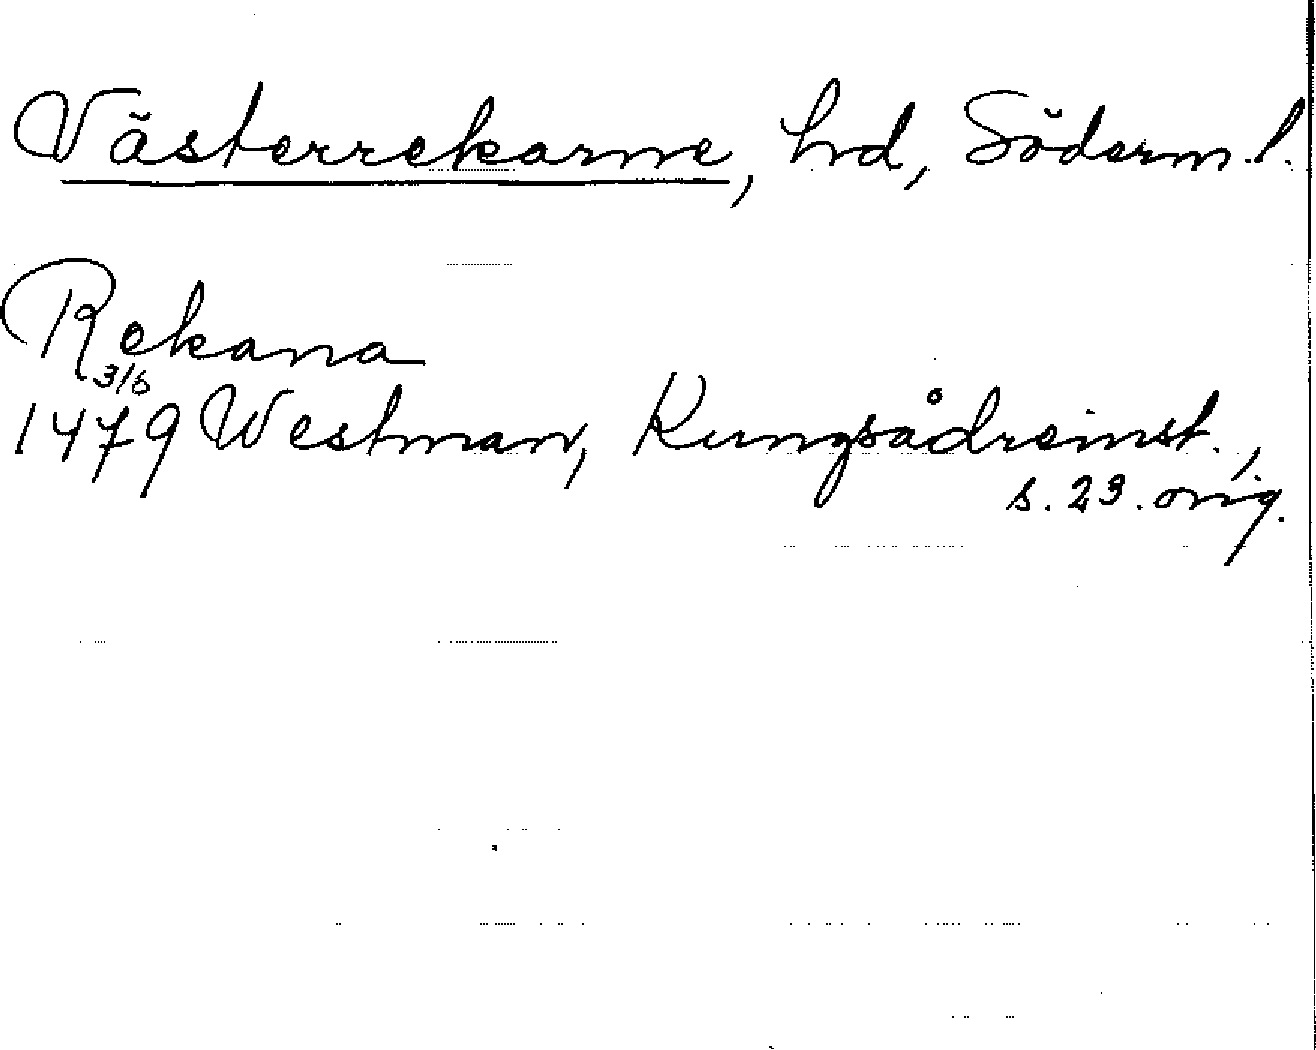 Västerrekarne, hd, Söderm.l.
Rekana
3/6
1479 Westman, Kungsådreinst.,
s. 23. orig.